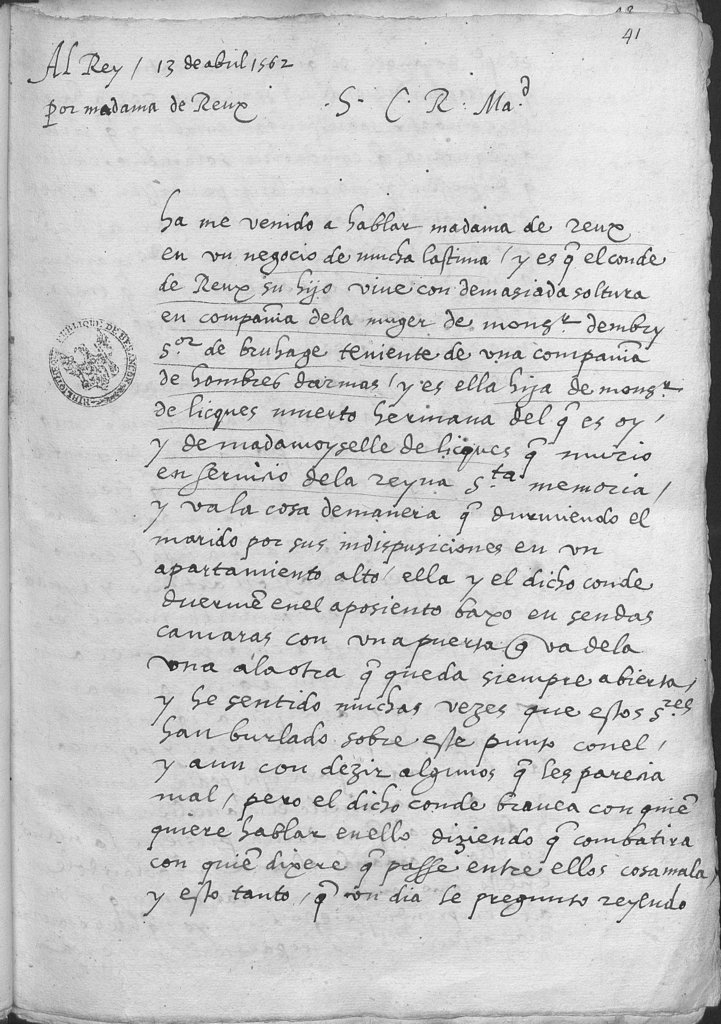 48
41
Al Rey / 13 de abril 1562
por madama de Reux
S. C. R. Ma.d
ha me venido a hablar madama de reux
en vn negocio de mucha lastima / y es q̃ el conde
de Reux su hijo vive con demasiada soltura
en compañia dela muger de mons.r dembry
s.or de bruhage teniente de vna compañia
de hombres darmas / y es ella hija de mons.r
de licques muerto hermana del q̃ es oy /
y de madamoyselle de licques q̃ murio
en servicio dela reyna s.ta memoria /
y va la cosa de manera q̃ durmiendo el
marido por sus indisposiciones en vn
apartamiento alto / ella y el dicho conde
duermẽ enel aposiento baxo en sendas
camaras con vna puerta q̃ va dela
vna ala otra q̃ queda siempre abierta /
y he sentido muchas vezes que estos s.res
han burlado sobre este punto conel /
y aun con dezir algunos q̃ les parecia
mal / pero el dicho conde bravea con quiẽ
quiere hablar enello diziendo q̃ combatira
con quiẽ dixere q̃ passe entre ellos cosa mala /
y esto tanto / q̃ vn dia le pregunto reyendo